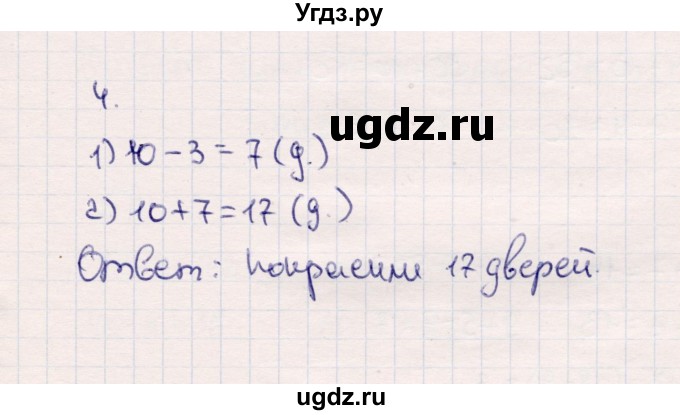 Угдз.ру
4.
ugdz.ru
1) 10 - 3 = 7 (д.)
2) 10 + 7 = 17 (д.)
Ответ: покрасили 17 дверей.
ugdz.ru